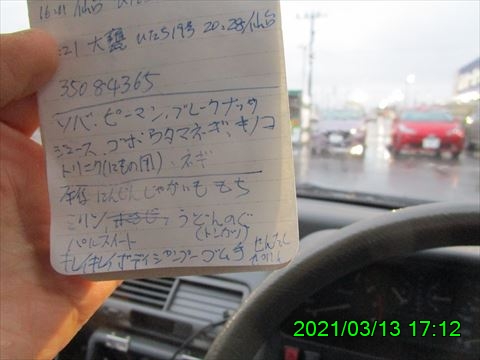 16:41 仙台
:21 大甕 ひたち19号 20:28 仙台
35084365
ソバ、ピーマン、ブレークナッツ
ジュース、ゴボウ タマネギ、キノコ
トリニク(にもの用)、ネギ
にんじん じゃがいも もち
ミリン うどんのぐ
(トンカツ)
パルスイート
キレイキレイボディシャンプー ゴム手
2021/03/13 17:12